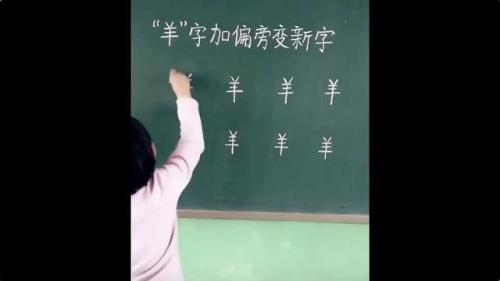 “羊”字加偏旁变新字
羊 羊 羊 羊
羊 羊 羊